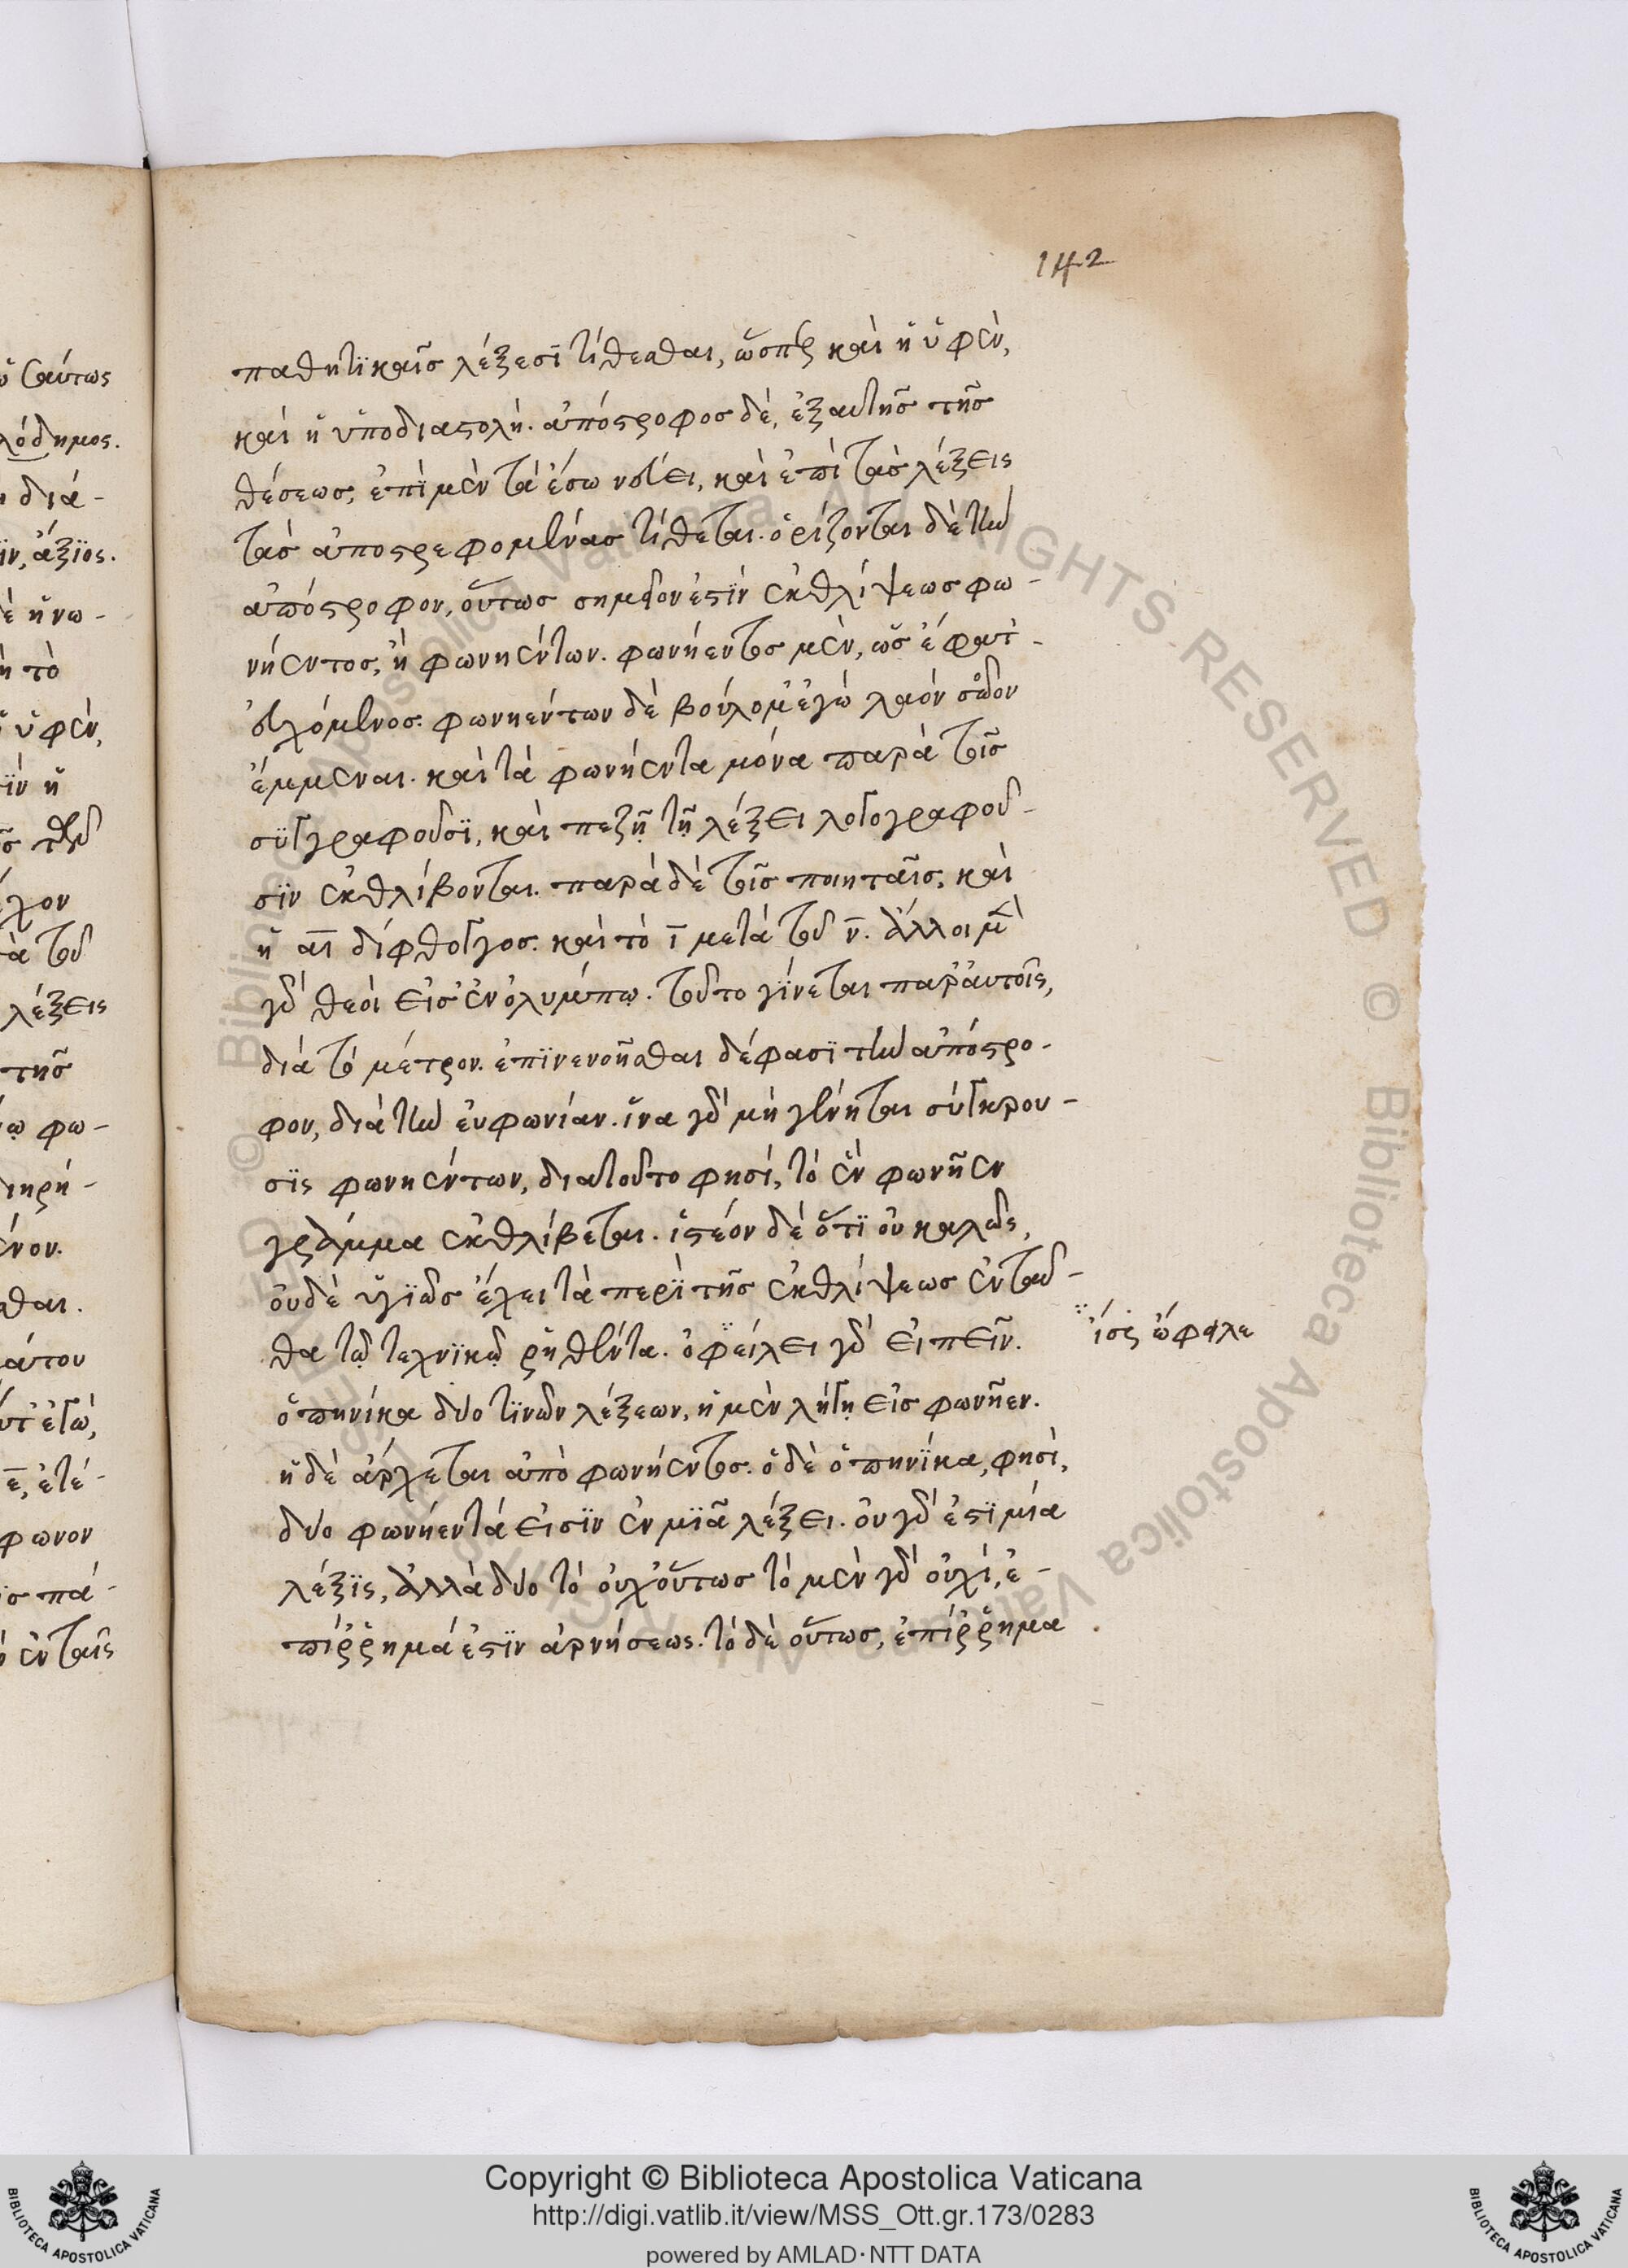 142
παθητικαῖς λέξεσι τίθεσθαι, ὥσπερ καὶ ἡ ὑφὲν,
καὶ ἡ ὑποδιαστολή. ἀπόστροφος δὲ, ἐξ αὐτῆς τῆς
θέσεως, ἐπὶ μὲν τὰ ἔσω νεύει, καὶ ἐπὶ τὰς λέξεις
τὰς ἀποστρεφομένας τίθεται. ὁρίζονται δὲ τὴν
ἀπόστροφον, οὕτως σημεῖον ἐστὶν ἐκθλίψεως φω-
νήεντος, ἢ φωνηέντων. φωνήεντος μὲν, ὡς ἔφατ᾽
εὐχόμενος. φωνηέντων δὲ βούλομ᾽ ἐγὼ λαὸν σῶον
ἔμμεναι. καὶ τὰ φωνήεντα μόνα παρὰ τοῖς
συγγραφοῦσι, καὶ πεζῇ τῇ λέξει λογογραφοῦ-
σιν ἐκθλίβονται. παρὰ δὲ τοῖς ποιηταῖς, καὶ
ἡ αι δίφθογγος. καὶ τὸ ι μετὰ τοῦ ν. ἄλλοι μὲν
γὰρ θεοὶ εἰσ᾽ ἐν ὀλύμπῳ. τοῦτο γίνεται παρ᾽ αὐτοῖς,
διὰ τὸ μέτρον. ἐπινενοῆσθαι δέ φασι τὴν ἀπόστρο-
φον, διὰ τὴν εὐφωνίαν. ἵνα γὰρ μὴ γένηται σύγκρου-
σις φωνηέντων, διατοῦτο φησί, τὸ ἓν φωνῆεν
γράμμα ἐκθλίβεται. ἰστέον δὲ ὅτι οὐ καλῶς,
οὐδὲ ὑγιῶς ἔχει τὰ περὶ τῆς ἐκθλίψεως ἐνταῦ-
θα τῷ τεχνικῷ ῥηθέντα. ὀφείλει γὰρ εἰπεῖν.
ἴσως ὤφειλε
ὁπηνίκα δύο τινῶν λέξεων, ἡ μὲν λήγῃ εἰς φωνῆεν.
ἡ δὲ ἄρχεται ἀπὸ φωνήεντος. ὁ δὲ ὁπηνίκα, φησὶ,
δύο φωνήεντά εἰσιν ἐν μιᾷ λέξει. οὐ γὰρ ἐστὶ μία
λέξις, ἀλλὰ δύο τὸ οὐχ᾽ οὕτως τὸ μὲν γὰρ οὐχί, ἐ-
πίῤῥημά ἐστιν ἀρνήσεως. τὸ δὲ οὕτως, ἐπίῤῥημα
ὡσαύτως
διά-
ἄξιος.
ἡνω-
τὸ
ὑφὲν,
λέξεις
τῆς
φω-
πά-
ἐν ταῖς
© Biblioteca Apostolica Vaticana ALL RIGHTS RESERVED
Copyright © Biblioteca Apostolica Vaticana
http://digi.vatlib.it/view/MSS_Ott.gr.173/0283
powered by AMLAD·NTT DATA
BIBLIOTECA APOSTOLICA VATICANA
BIBLIOTECA APOSTOLICA VATICANA